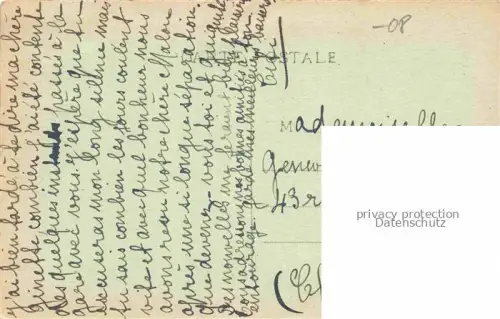 -08
CARTE POSTALE
J'ai bien tardé à te dire ma chère
Ginette combien j'ai été contente
des quelques instants passés à la
gare avec vous. J'espère que tu
excuseras mon long silence mais
tu sais combien les jours coulent
vite et avec quel bonheur nous
avons revu notre chère Malou
après une si longue séparation.
Que devenez-vous toi et
Des nouvelles me feraient plaisir
nos bonnes amitiés à ton
entourage meilleurs baisers
Mademoiselle
43 r
privacy protection
Datenschutz